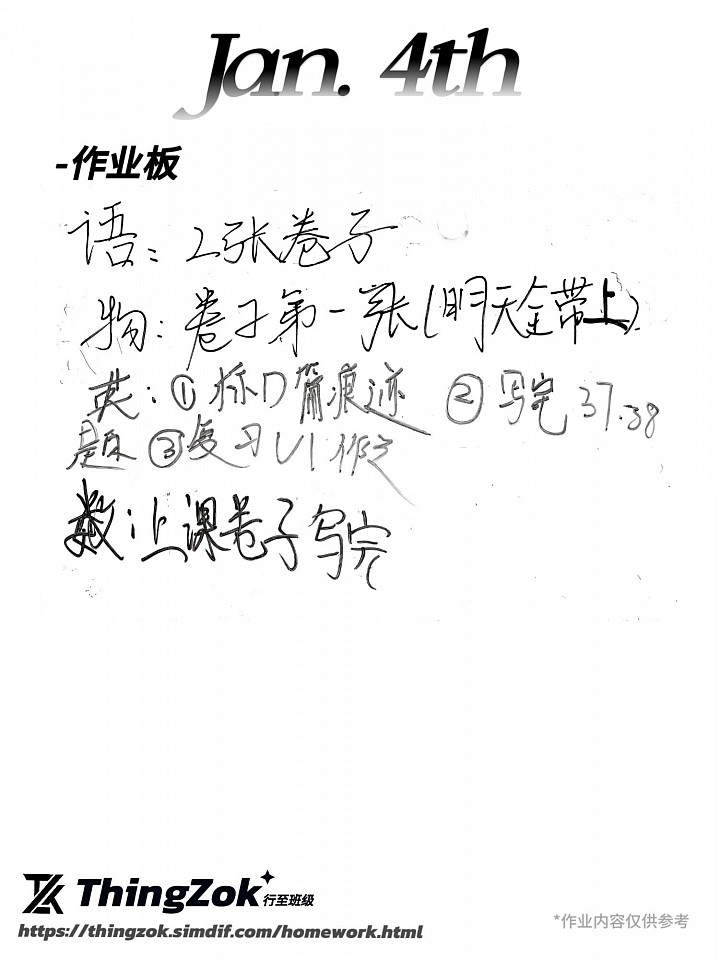 Jan. 4th
-作业板
语：2张卷子
物：卷子第一张(明天全带上).
英：①标D篇痕迹 ②写完 37.38
题 ③复习U1作文
数：上课卷子写完
ThingZok 行至班级
https://thingzok.simdif.com/homework.html
*作业内容仅供参考